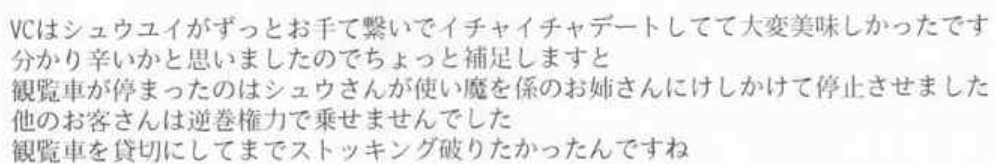 VCはシュウユイがずっとお手て繋いでイチャイチャデートしてて大変美味しかったです
分かり辛いかと思いましたのでちょっと補足しますと
観覧車が停まったのはシュウさんが使い魔を係のお姉さんにけしかけて停止させました
他のお客さんは逆巻権力で乗せませんでした
観覧車を貸切にしてまでストッキング破りたかったんですね